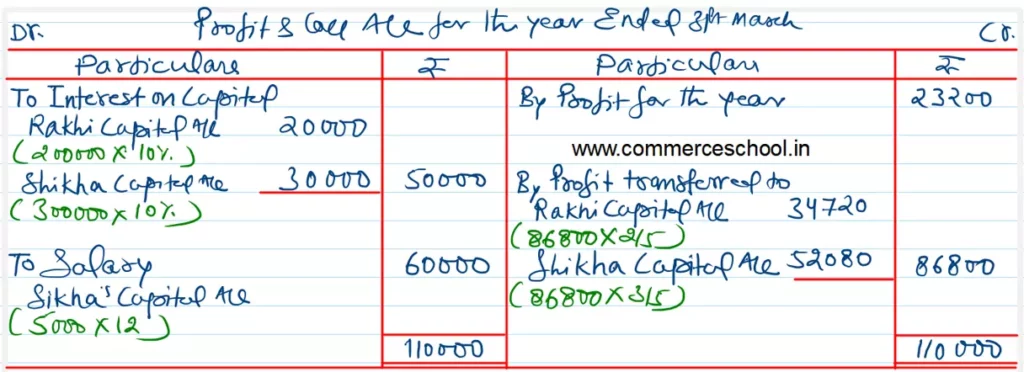 Profit & Loss A/c for the year Ended 31st March
Dr. Cr.
Particulars ₹ Particulars ₹
To Interest on Capital By Profit for the year 23200
Rakhi Capital A/c 20000
(200000 X 10%) www.commerceschool.in
Shikha Capital A/c 30000 50000 By Profit transferred to
(300000 X 10%) Rakhi Capital A/c 34720
(86800 X 2/5)
To Salary 60000 Shikha Capital A/c 52080 86800
Sikha's Capital A/c (86800 X 3/5)
(5000 X 12)
110000 110000